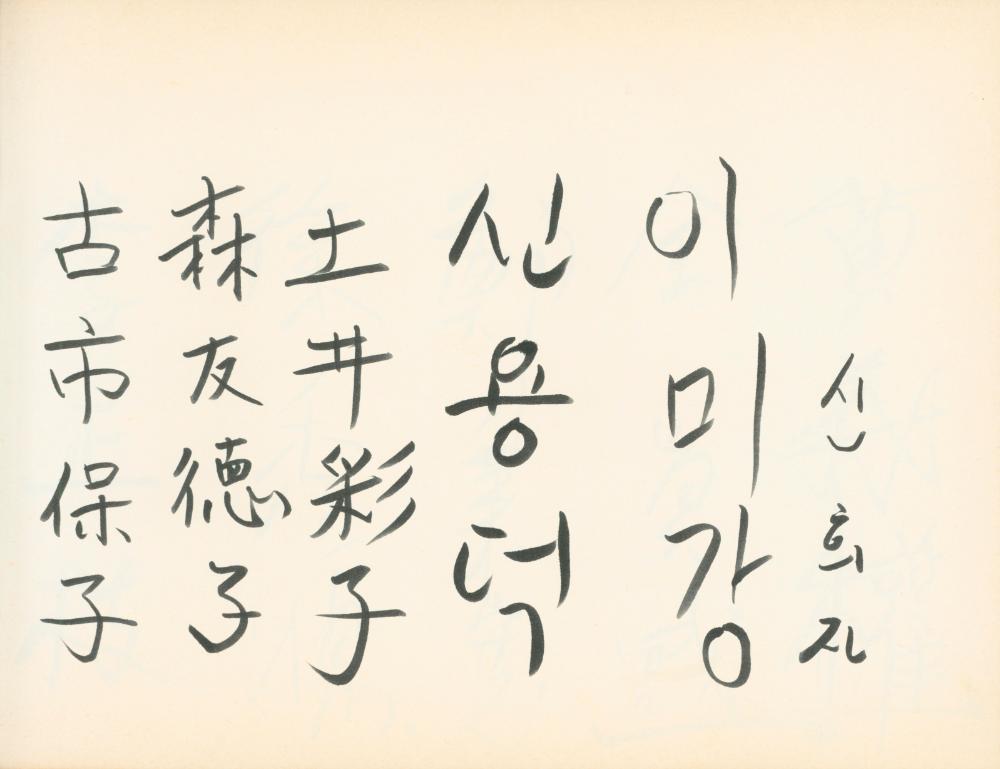 신희자
이미강
신용덕
土井彩子
森友徳子
古市保子